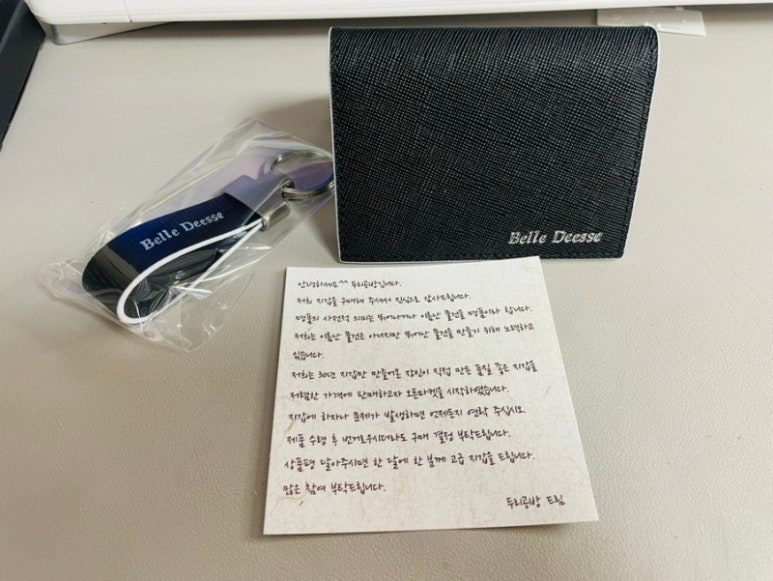 Belle Deesse
Belle Deesse
안녕하세요^^ 두리공방입니다.
저희 지갑을 구매해 주셔서 진심으로 감사드립니다.
명품의 사전적 의미는 뛰어나거나 이름난 물건을 명품이라 합니다.
저희는 이름난 물건은 아니지만 뛰어난 물건을 만들기 위해 노력하고
있습니다.
저희는 30년 지갑만 만들어온 장인이 직접 만든 품질 좋은 지갑을
저렴한 가격에 판매하고자 오픈마켓을 시작하였습니다.
지갑에 하자나 문제가 발생하면 언제든지 연락 주십시오.
제품 수령 후 번거로우시더라도 구매 결정 부탁드립니다.
상품평 달아주시면 한 달에 한 분께 고급 지갑을 드립니다.
많은 참여 부탁드립니다.
두리공방 드림